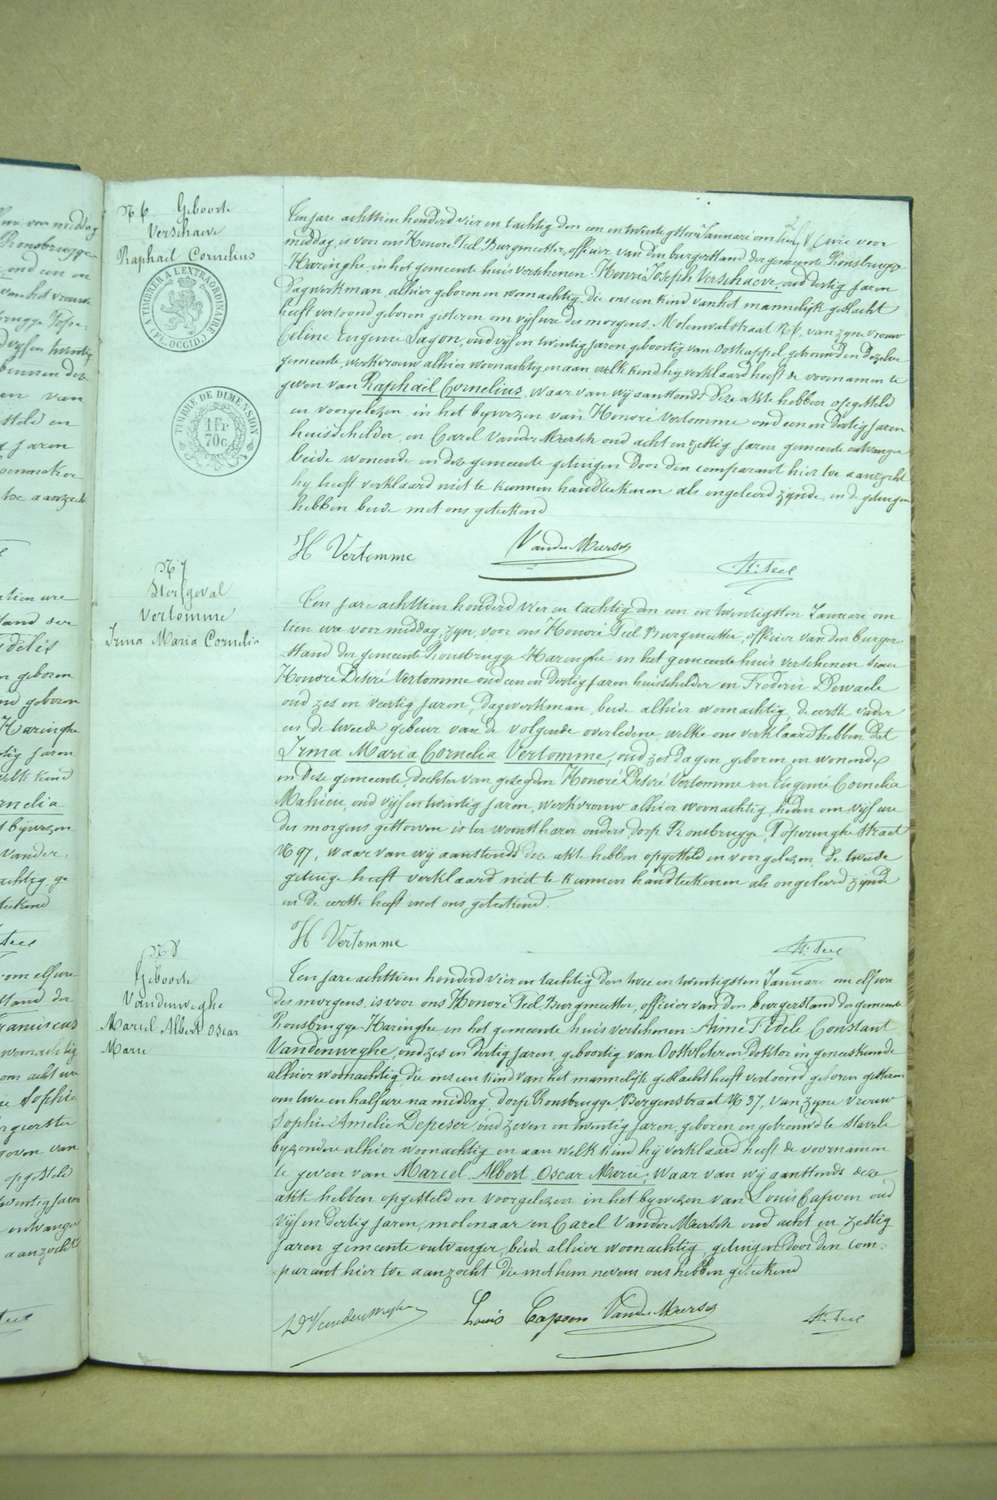 N 6 Geboorte
Verschaeve
Raphaël Cornelius
TIMBRER A L'EXTRAORDINAIRE
(FL. OCCID.)
TIMBRE DE DIMENSION
1 FR
70 C.
Ten jare achttien honderd vier en tachtig den een en twintigsten Januari om tien ure voor
middag, is voor ons Honoré Feel Burgmeester, officier van den burgerstand der gemeente Ronsbrugge
Haringhe in het gemeente huis verschenen Henri Joseph Verschaeve, oud dertig jaren
Dagwerkman, alhier geboren en woonachtig, die ons een kind van het mannelijk geslacht
heeft vertoond geboren gisteren om vijf ure des morgens, Molenwalstraat N van zyne vrouw
Celine Eugenie Sagon, oud vijf en twintig jaren, geboortig van Oostkappel, gehuwd in dezelve
gemeente, werkvrouw alhier woonachtig en aan welk kind hy verklaard heeft de voornamen te
geven van Raphaël Cornelius, waar van wij aanstonds deze akte hebben opgesteld
en voorgelezen in het bywezen van Honoré Vertomme oud een en dertig jaren
huisschilder, en Carel Vander Meersch oud acht en zestig jaren gemeente ontvanger
beide wonende in deze gemeente getuigen door den comparant hier toe aanzocht
hy heeft verklaard niet te kunnen handteekenen als ongeleerd zynde, en de getuigen
hebben beide met ons geteekend
H Vertomme VanderMeersch H: Feel
N 7
Sterfgeval
Vertomme
Irma Maria Cornelia
Ten jare achttien honderd vier en tachtig den een en twintigsten Januari om
tien ure voor middag, zyn voor ons Honoré Feel Burgmeester, officier van den burger
stand der gemeente Ronsbrugge Haringhe in het gemeente huis verschenen
Honoré Desiré Vertomme oud een en dertig jaren huisschilder en Frederic Dewaele
oud zes en veertig jaren, dagwerkman, beide alhier woonachtig, de eerste vader
en de tweede gebuur van de volgende overledene, welke ons verklaard hebben dat
Irma Maria Cornelia Vertomme, oud zes dagen geboren en wonende
in deze gemeente, dochter van gezegden Honoré Desiré Vertomme en Eugenie Cornelia
Mahieu, oud vijf en twintig jaren, werkvrouw alhier woonachtig, heden om vijf ure
des morgens gestorven is ten woonst harer ouders dorp Ronsbrugge, Poperinghe straat
N 97, waar van wij aanstonds deze akte hebben opgesteld en voorgelezen, de tweede
getuige heeft verklaard niet te kunnen handteekenen als ongeleerd zijnde
en de eerste heeft met ons geteekend.
H Vertomme H: Feel
N 8
Geboorte
Vandenweghe
Marcel Albert Oscar
Marie
Ten jare achttien honderd vier en tachtig den twee en twintigsten Januari om elf ure
des morgens, is voor ons Honoré Feel, Burgmeester, officier van den burgerstand der gemeente
Ronsbrugge Haringhe in het gemeente huis verschenen Aimé Fidele Constant
Vandenweghe, oud zes en dertig jaren, geboortig van Oostvleteren Doktor in geneeskunde
alhier woonachtig, die ons een kind van het mannelijk geslacht heeft vertoond geboren gisteren
om twee en half ure na middag, dorp Ronsbrugge Bergenstraat N 37, van zyne vrouw
Sophie Amelie Depeser, oud zeven en twintig jaren, geboren en getrouwd te Stavele
byzondere alhier woonachtig en aan welk kind hij verklaard heeft de voornamen
te geven van Marcel Albert Oscar Marie; waar van wij aanstonds deze
akte hebben opgesteld en voorgelezen in het bywezen van Louis Capoen oud
vijf en dertig jaren, molenaar en Carel Vander Meersch oud acht en zestig
jaren gemeente ontvanger, beide alhier woonachtig, getuigen door den com-
parant hier toe aanzocht die met hem nevens ons hebben geteekend
Dr Vandenweghe Louis Capoen VanderMeersch H: Feel